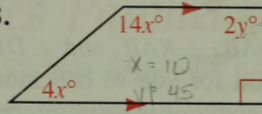 14x°
2y°
x = 10
4x°
y = 45